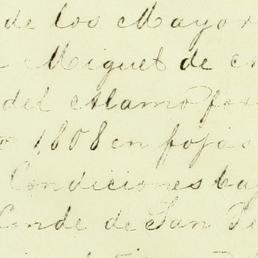 de los Mayor
Miguel de
del Alamo
1808 en fojas
Condiciones baj
Conde de San